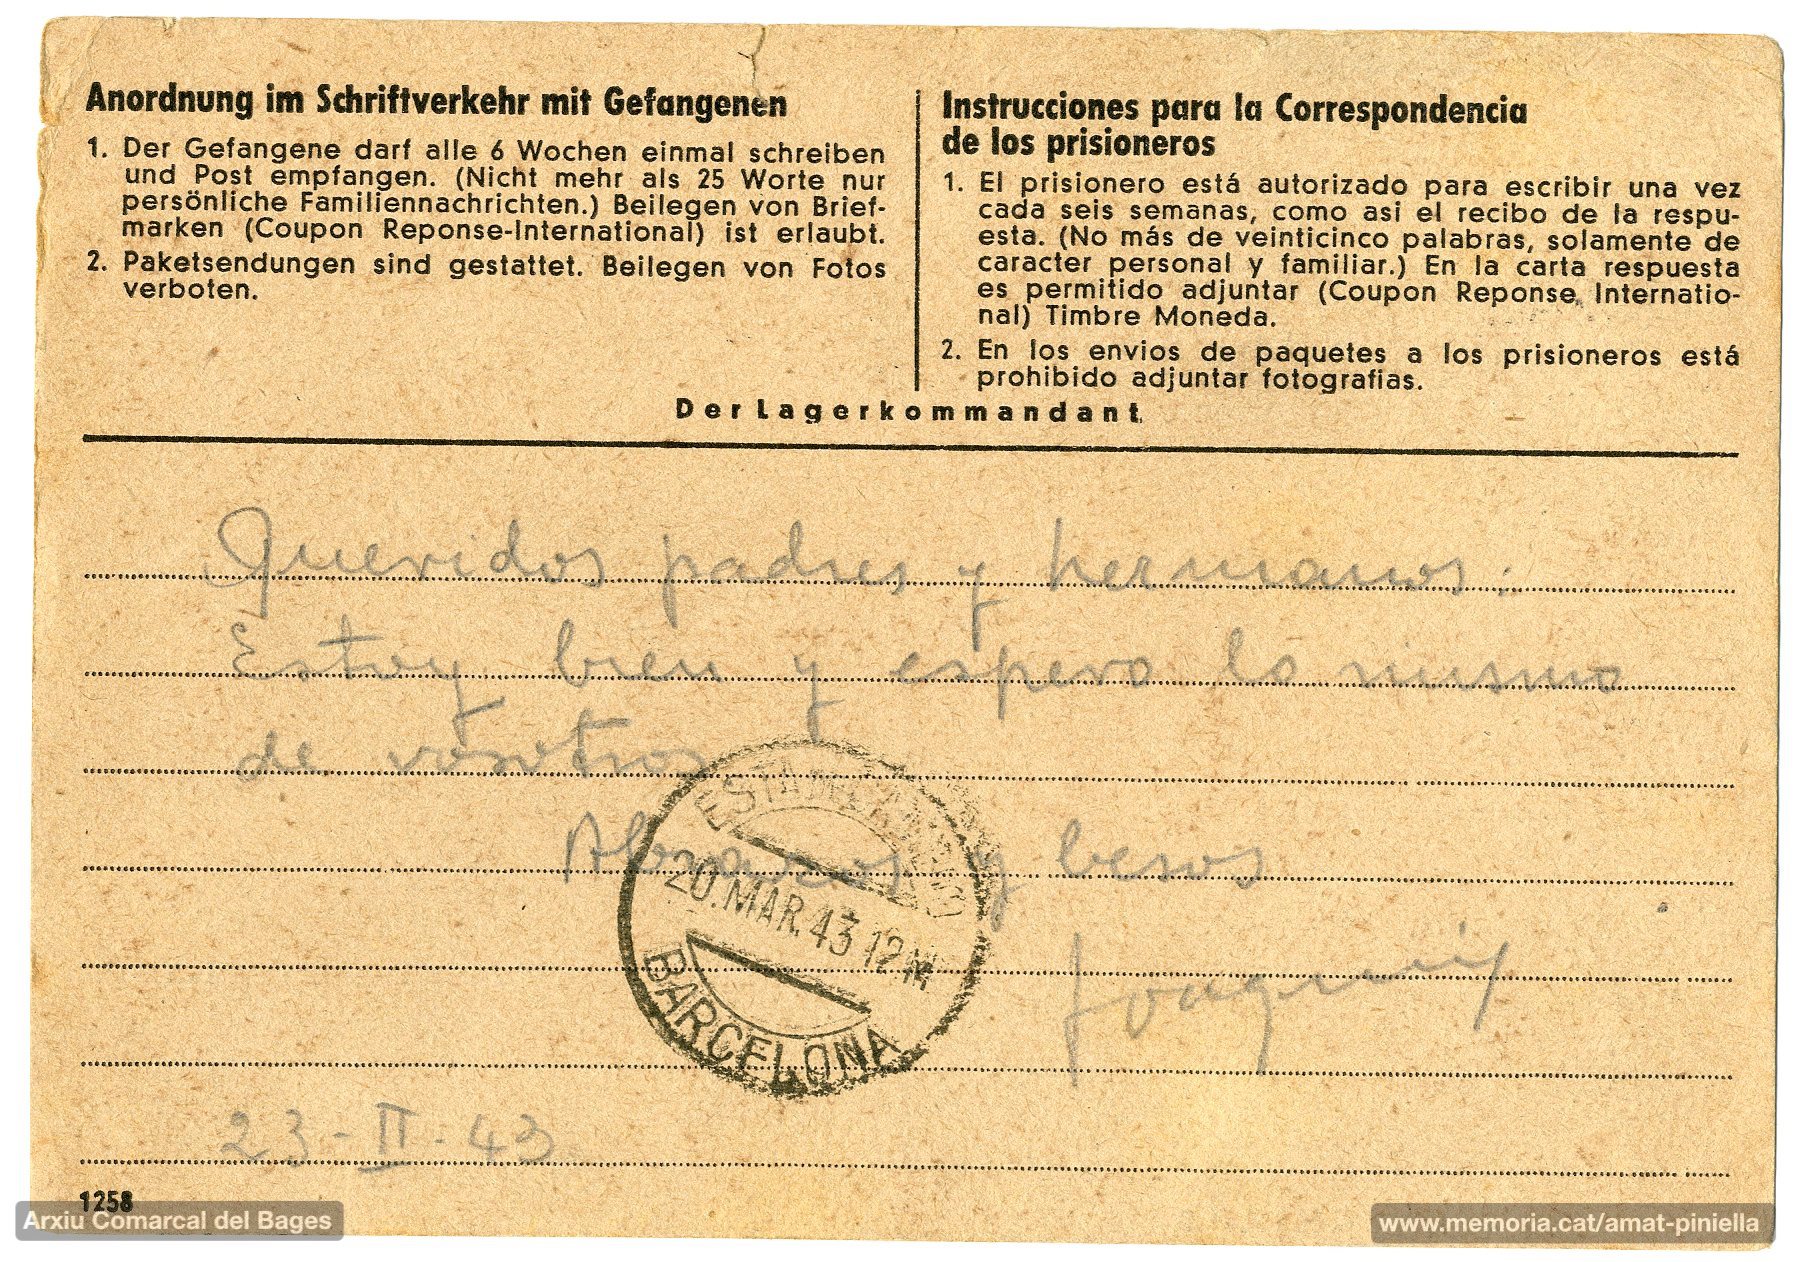 Anordnung im Schriftverkehr mit Gefangenen
1. Der Gefangene darf alle 6 Wochen einmal schreiben
und Post empfangen. (Nicht mehr als 25 Worte nur
persönliche Familiennachrichten.) Beilegen von Brief-
marken (Coupon Reponse-International) ist erlaubt.
2. Paketsendungen sind gestattet. Beilegen von Fotos
verboten.
Instrucciones para la Correspondencia
de los prisioneros
1. El prisionero está autorizado para escribir una vez
cada seis semanas, como asi el recibo de la respu-
esta. (No más de veinticinco palabras, solamente de
caracter personal y familiar.) En la carta respuesta
es permitido adjuntar (Coupon Reponse, Internatio-
nal) Timbre Moneda.
2. En los envios de paquetes a los prisioneros está
prohibido adjuntar fotografias.
Der Lagerkommandant
Queridos padres y hermanos:
Estoy bien y espero lo mismo
de vosotros
Abrazos y besos
Joaquín
20.MAR.43 12M
BARCELONA
23-II-43
1258
Arxiu Comarcal del Bages
www.memoria.cat/amat-piniella